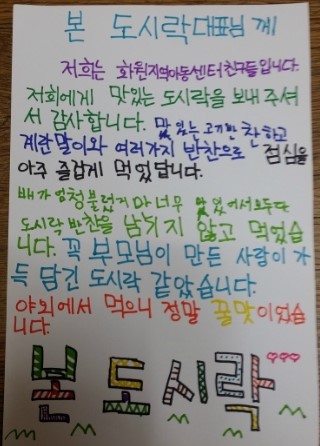 본 도시락대표님께
저희는 화원지역아동센터친구들입니다.
저희에게 맛있는 도시락을 보내 주셔
서 감사합니다. 맛있는 고기반찬하고
계란말이와 여러가지 반찬으로 점심을
아주 즐겁게 먹었답니다.
배가 엄청 불렀지마 너무 맛있어서 모두다
도시락 반찬을 남기지 않고 먹었습
니다. 꼭 부모님이 만든 사랑이 가
득 담긴 도시락 같았습니다.
야외에서 먹으니 정말 꿀맛이었습
니다.
본 도시락